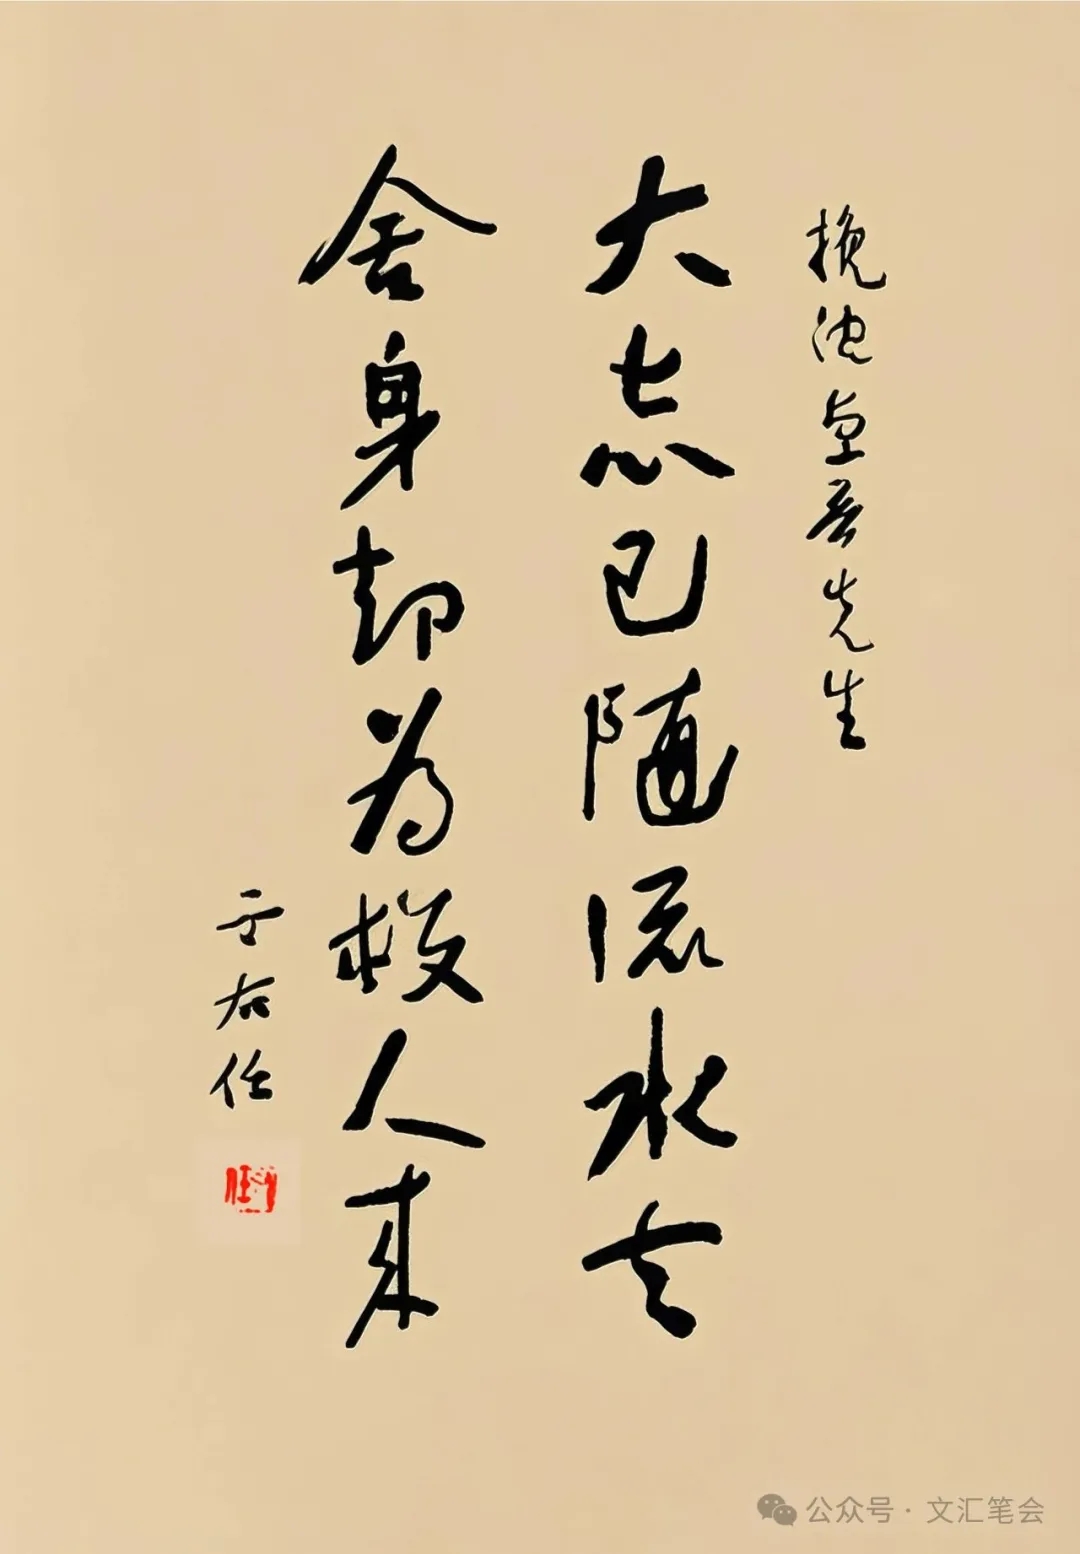 挽沈卓吾先生
大志已随流水去
舍身却为救人来
于右任
公众号 · 文汇笔会